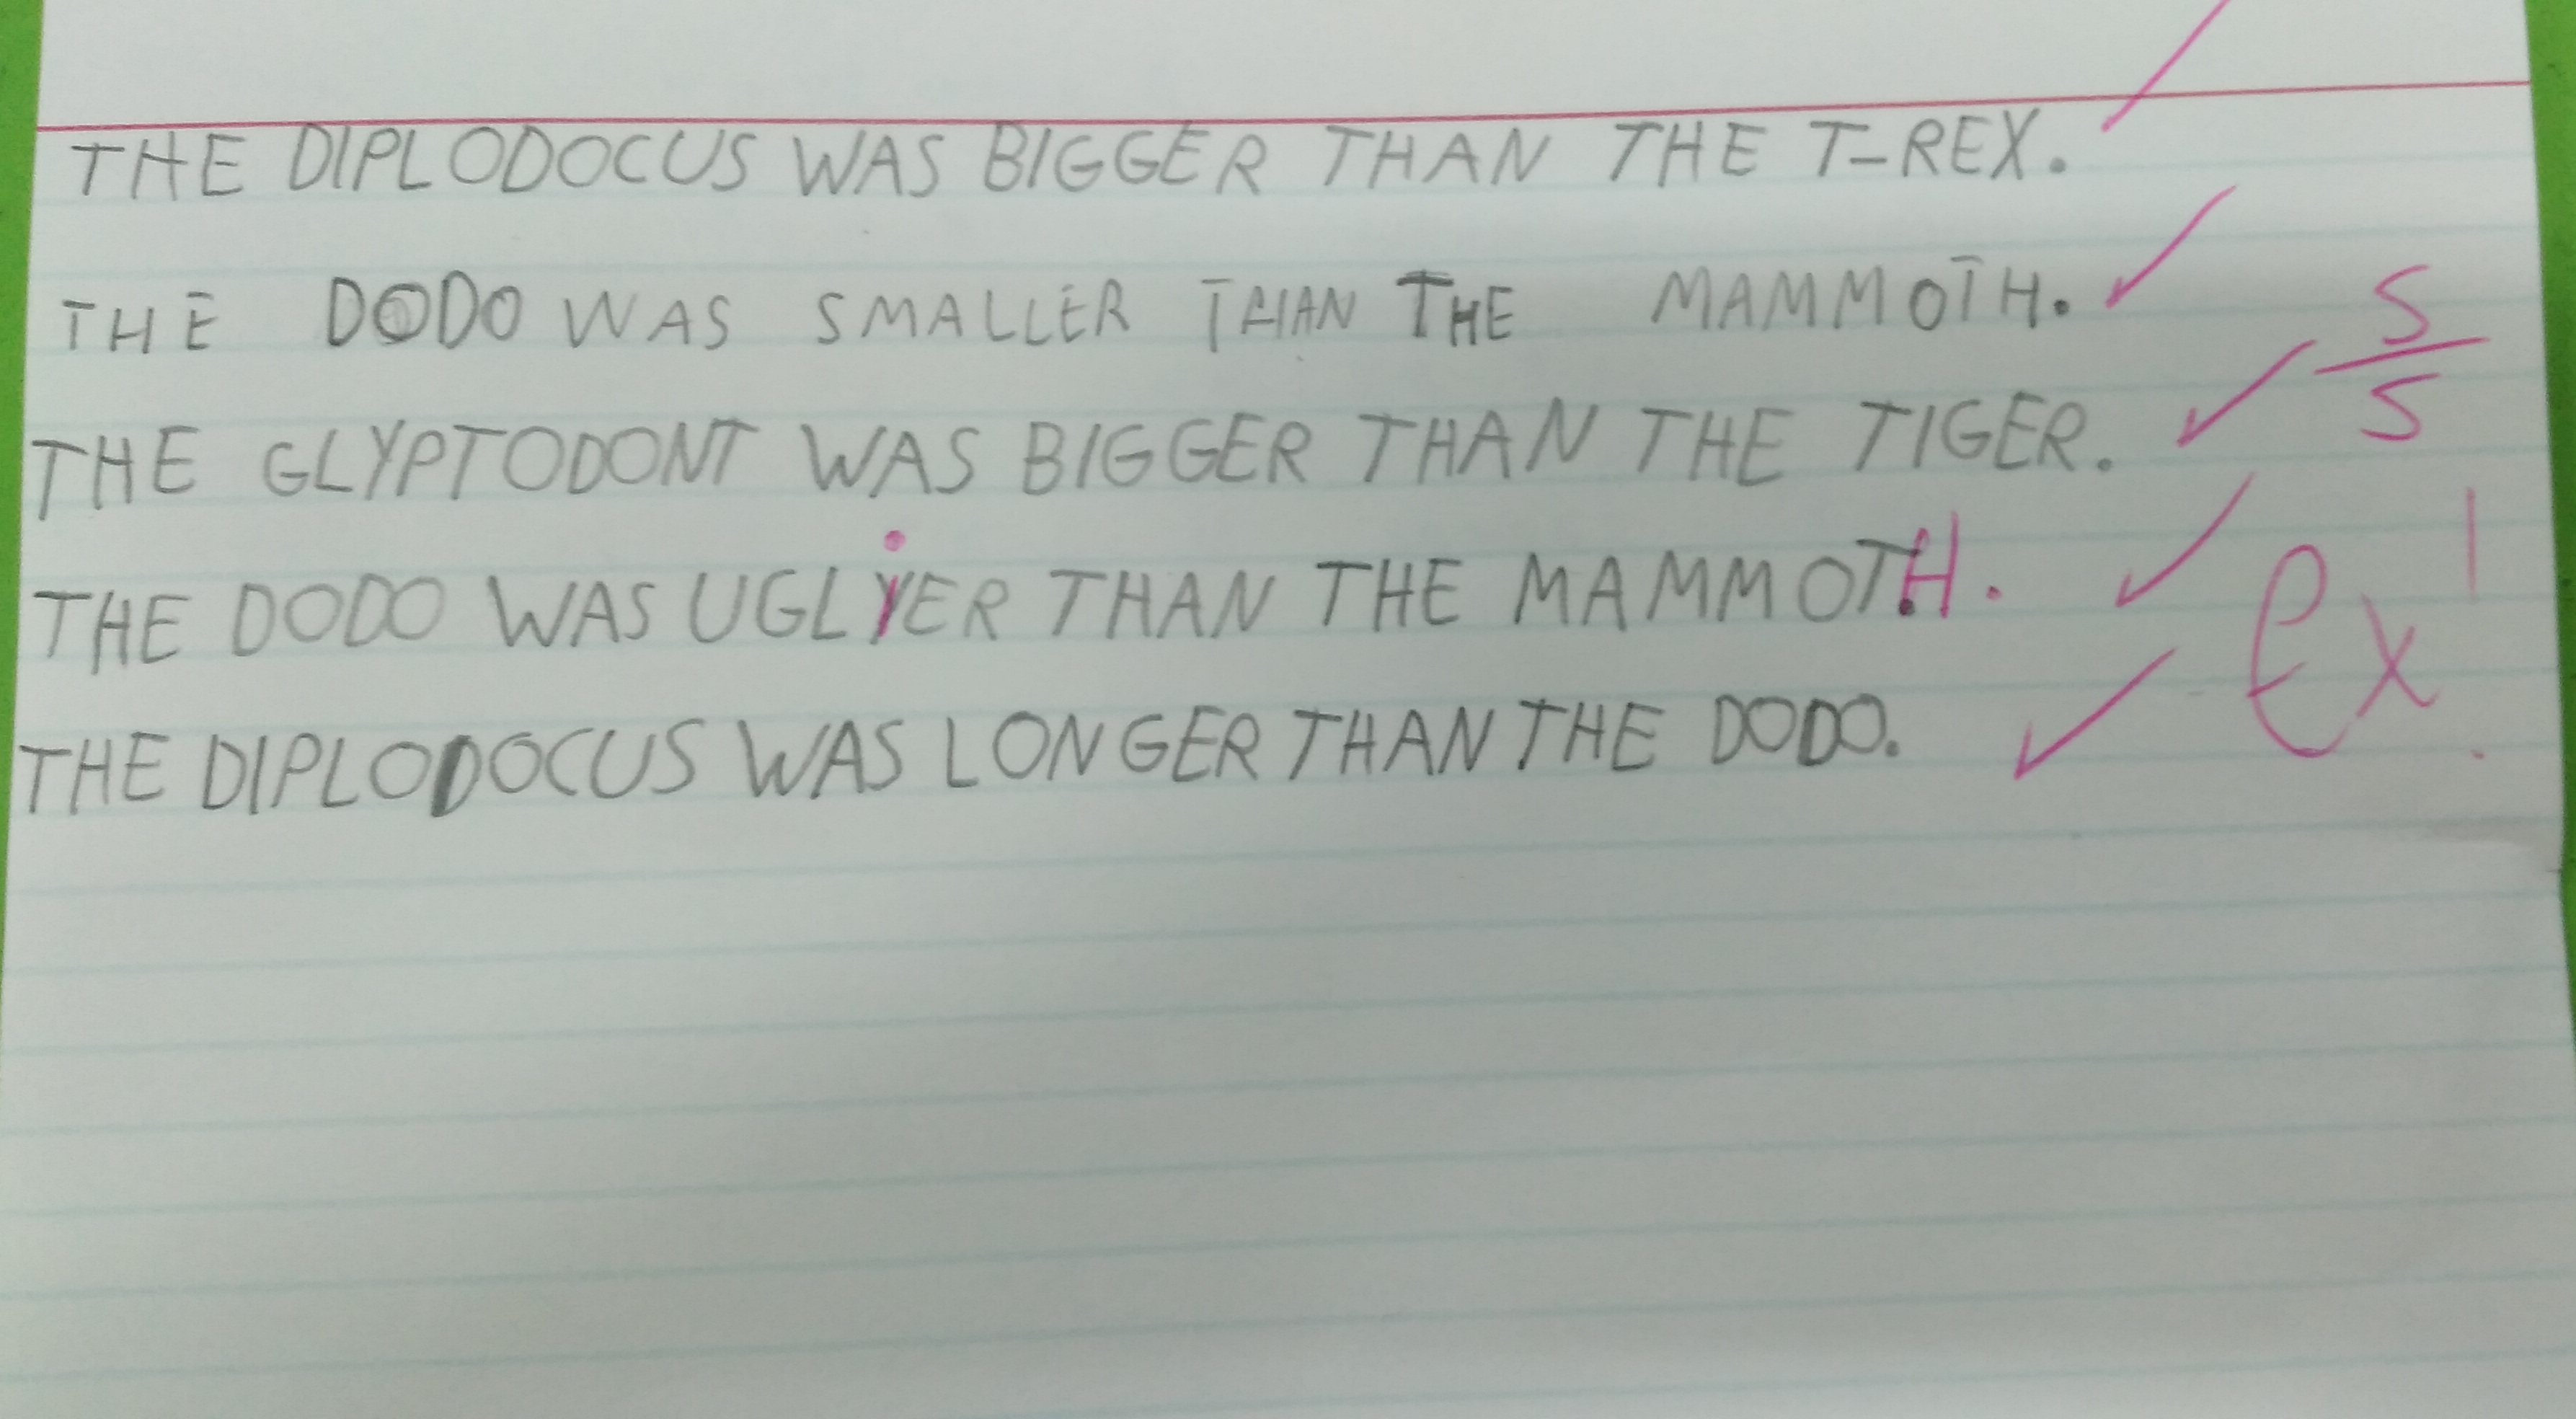 THE DIPLODOCUS WAS BIGGER THAN THE T-REX.
THE DODO WAS SMALLER THAN THE MAMMOTH.
THE GLYPTODONT WAS BIGGER THAN THE TIGER.
THE DODO WAS UGLiER THAN THE MAMMOTH.
THE DIPLODOCUS WAS LONGER THAN THE DODO.
5/5
Ex!